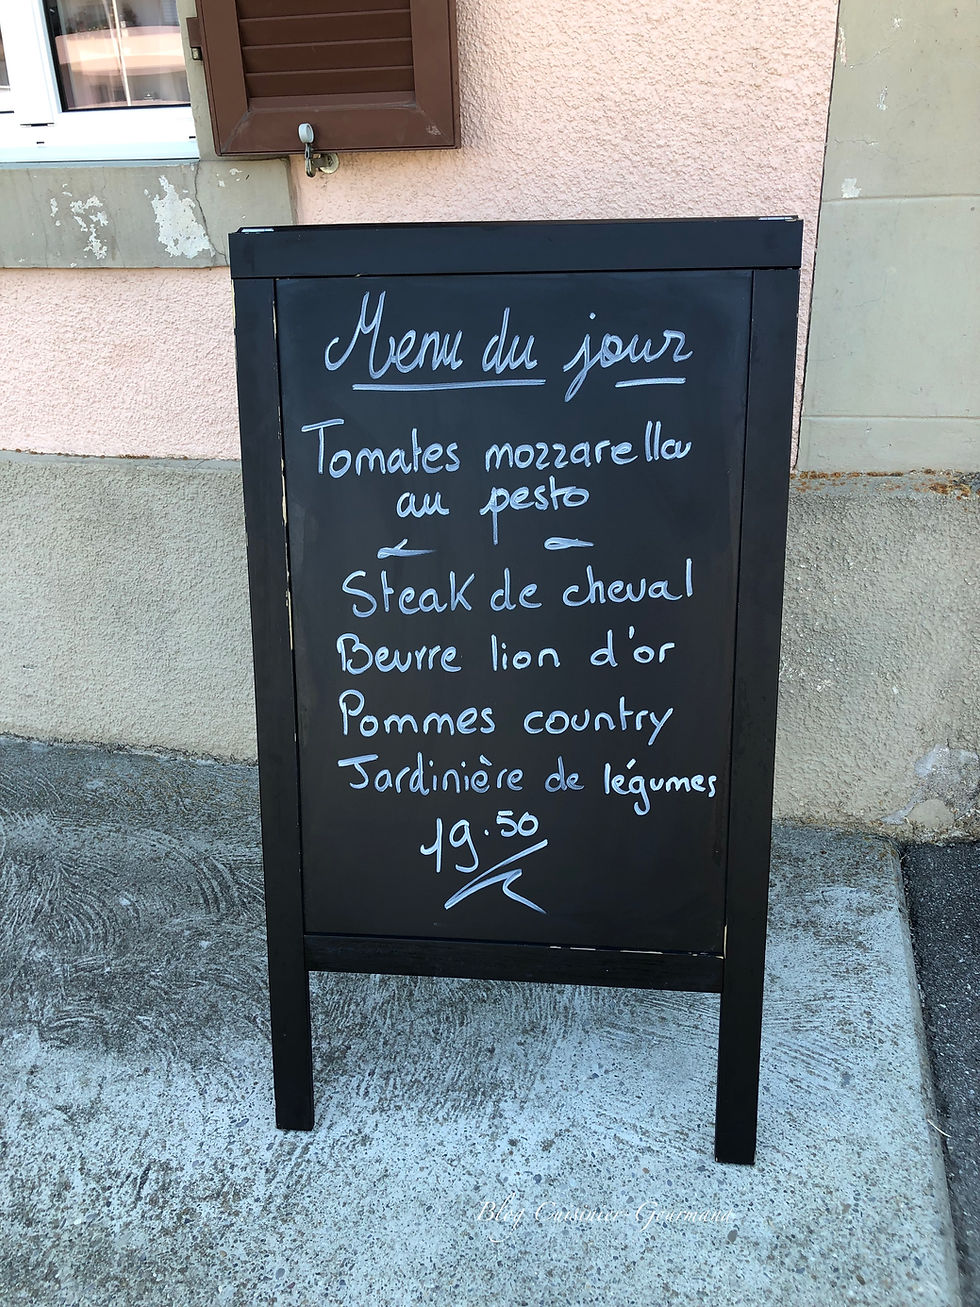 Menu du jour
Tomates mozzarella
au pesto
Steak de cheval
Beurre lion d'or
Pommes country
Jardinière de légumes
19.50
Blog Cuisinier Gourmand